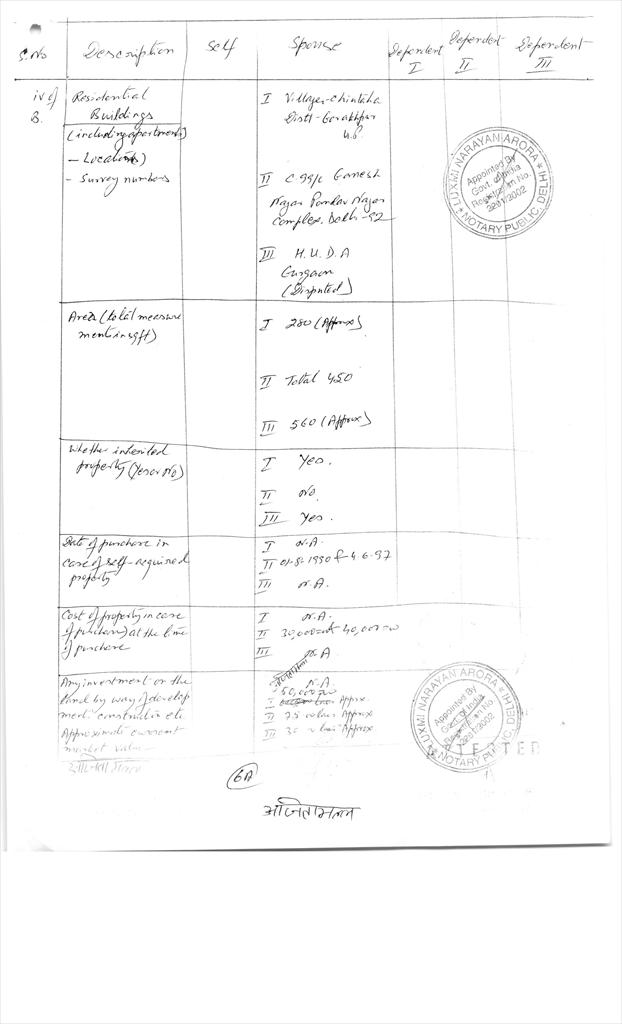 S.No Description Self Spouse Dependent I Dependent II Dependent III
iv of B. Residential Buildings
(including apartments)
- Locations)
- Survey numbers
I Village-Chintaha
Distt-Gorakhpur
U.P
II C 99/c Ganesh
Nagar Pandav Nagar
Complex. Delhi-92
III H.U.D.A
Gurgaon
(Disputed)
LUXMI NARAYAN ARORA
Appointed By
Govt. of India
Registration No.
2201/2002
★ NOTARY PUBLIC, DELHI ★
Area (total measure
ment in sqft)
I 280 (Approx)
II Total 450
III 560 (Approx)
Whether inherited
property (Yes or No)
I Yes.
II No
III Yes.
Date of purchase in
case of self-acquired
property
I N.A.
II 01-8-1990 & 4.6.97
III N.A.
Cost of property in case
of purchase) at the time
of purchase
I N.A.
II 30,000=00 40,000=00
III N.A
Any investment on the
land by way of develop
ment construction etc
Approximate current
market value
N.A.
50,000=00
I Approx.
II 25 Approx
III 30 Approx
LUXMI NARAYAN ARORA
Appointed By
Govt. of India
Registration No.
2201/2002
★ NOTARY PUBLIC, DELHI ★
ATTESTED
6A